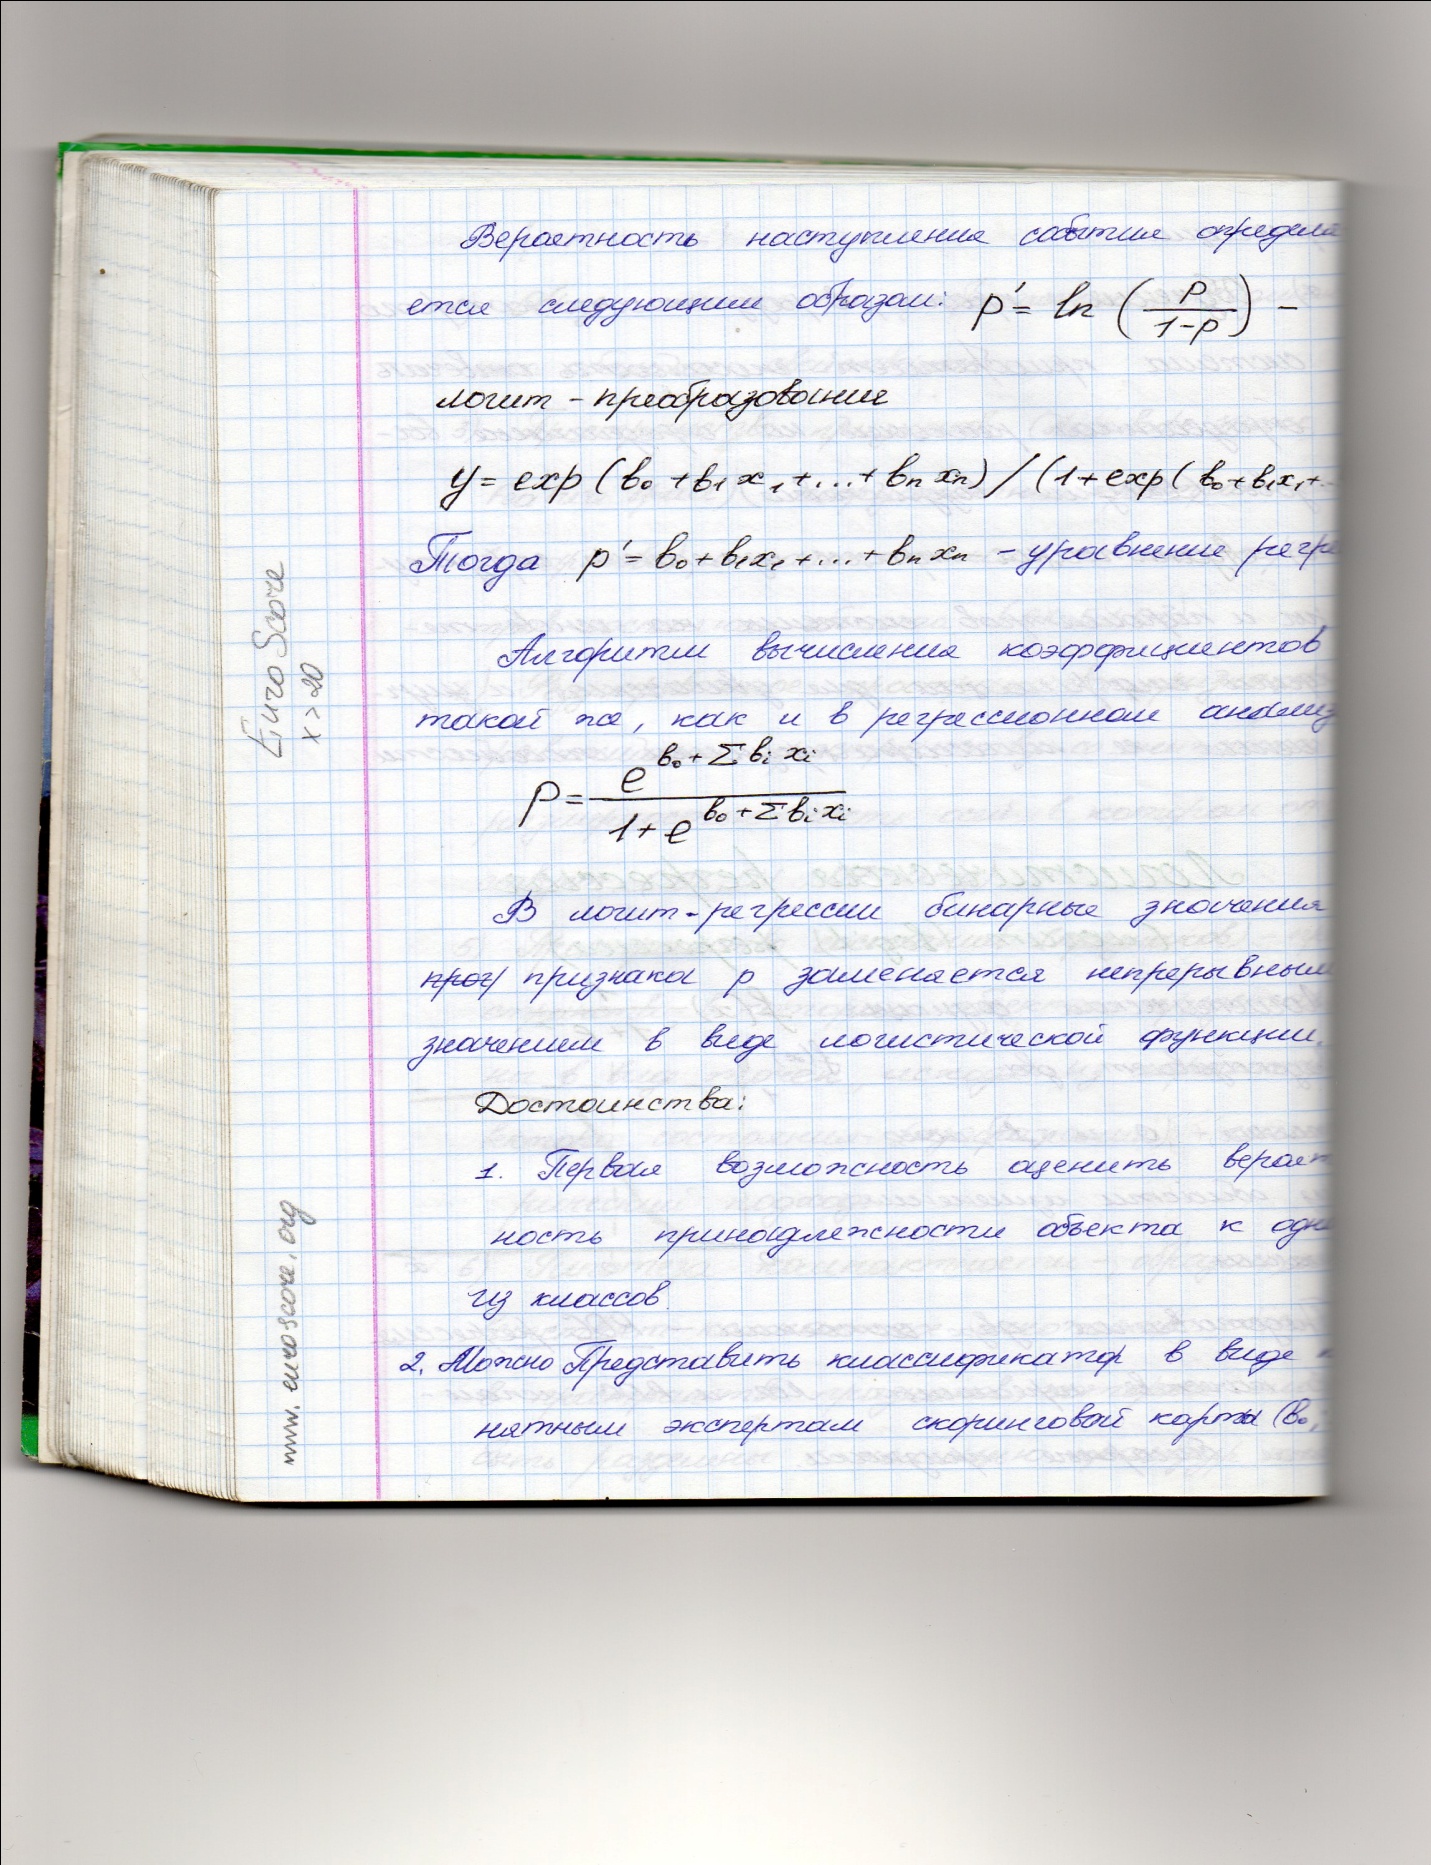 Вероятность наступления события определя
ется следующим образом: p' = ln (p / 1-p) -
логит - преобразование
y = exp (b₀ + b₁ x₁ + ... + bₙ xₙ) / (1 + exp ( b₀ + b₁x₁ + ..
Тогда p' = b₀ + b₁x₁ + ... + bₙ xₙ - уравнение регре
Алгоритм вычисления коэффициентов
такой же, как и в регрессионном анализ
p = e^(b₀ + Σ bᵢ xᵢ) / 1 + e^(b₀ + Σ bᵢ xᵢ)
В логит-регрессии бинарные значения
признака p заменяется непрерывным
значением в виде логистической функции.
Достоинства:
1. Первая возможность оценить вероят
ность принадлежности объекта к одно
из классов
2. Можно Представить классификатор в виде п
нятным экспертам скоринговой карты (b₀,
Euro Score
x > 20
www. euroscore. org